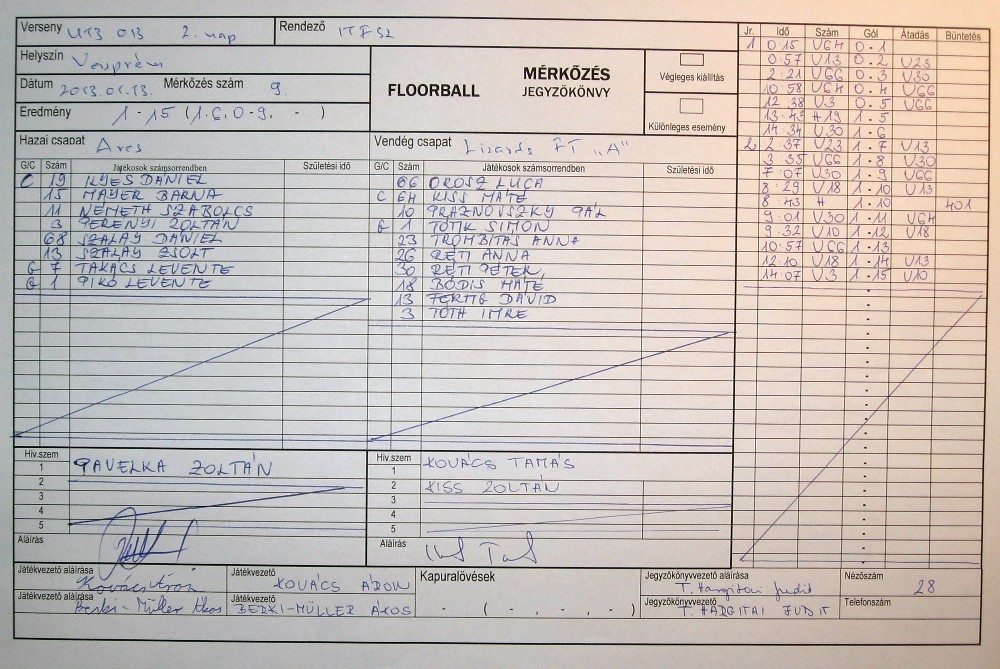 Verseny U13 OB 2. nap Rendező ITFSZ
Helyszín Veszprém
Dátum 2013.01.13. Mérkőzés szám 9.
Eredmény 1 - 15 (1-6, 0-9, - )
FLOORBALL MÉRKŐZÉS
JEGYZŐKÖNYV
Végleges kiállítás
Különleges esemény
Hazai csapat Ares
G/C Szám Játékosok számsorrendben Születési idő
C 19 ILYES DÁNIEL
15 MAYER BARNA
11 NÉMETH SZABOLCS
3 PERÉNYI ZOLTÁN
68 SZALAY DÁNIEL
13 SZALAY ZSOLT
G 7 TAKÁCS LEVENTE
G 1 PIKÓ LEVENTE
Hiv.szem
1 PAVELKA ZOLTÁN
2
3
4
5
Aláírás
Vendég csapat Lizards FT "A"
G/C Szám Játékosok számsorrendben Születési idő
66 OROSZ LUCA
C 64 KISS MÁTÉ
10 PRAZNOVSZKY PÁL
G 1 TÓTIK SIMON
23 TROMBITÁS ANNA
26 RÉTI ANNA
30 RÉTI PÉTER
18 BÓDIS MÁTÉ
13 FERTIG DÁVID
3 TÓTH IMRE
Hiv.szem
1 KOVÁCS TAMÁS
2 KISS ZOLTÁN
3
4
5
Aláírás
Jr. Idő Szám Gól Átadás Büntetés
1 0:15 V64 0 - 1
0:57 V13 0 - 2 V23
2:21 V66 0 - 3 V30
10:58 V64 0 - 4 V66
12:38 V3 0 - 5 V66
13:43 H19 1 - 5
14:34 V30 1 - 6
2 2:37 V23 1 - 7 V13
3:35 V66 1 - 8 V30
7:07 V30 1 - 9 V66
8:29 V18 1 - 10 V13
8:43 H 1 - 10 401
9:01 V30 1 - 11 V64
9:32 V10 1 - 12 V18
10:57 V66 1 - 13
12:10 V18 1 - 14 V13
14:07 V3 1 - 15 V10
Játékvezető aláírása Kovács Áron Játékvezető KOVÁCS ÁRON
Játékvezető aláírása Berki-Müller Ákos Játékvezető BERKI-MÜLLER ÁKOS
Kapuralövések
- ( - , - , - )
Jegyzőkönyvvezető aláírása T. Hargitai Judit
Jegyzőkönyvvezető T. HARGITAI JUDIT
Nézőszám 28
Telefonszám